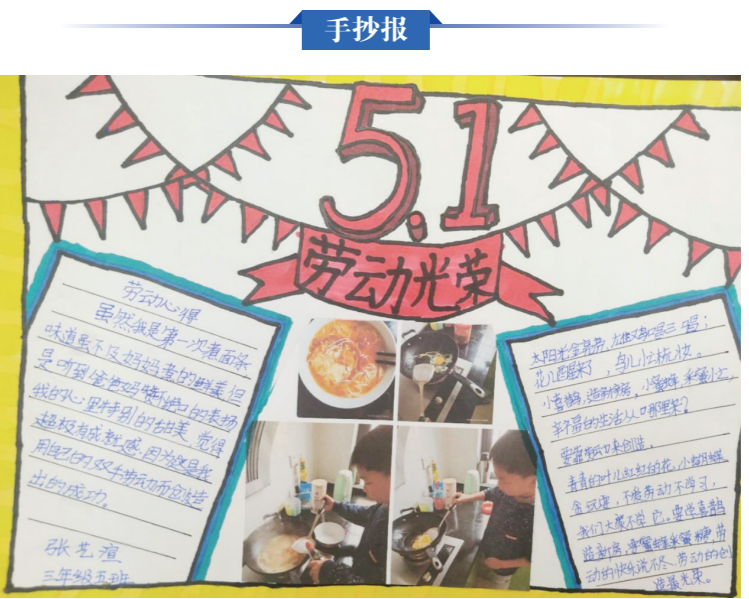 手抄报
5.1
劳动光荣
劳动心得
虽然我是第一次煮面条
味道虽不及妈妈煮的鲜美但
是听到爸爸妈赞不绝口的表扬
我的心里特别的甜美,觉得
超级有成就感,因为这是我
用自己的双手劳动而创造
出的成功。
三年级五班
太阳光金亮亮,雄鸡唱三唱;
花儿醒来了,鸟儿忙梳妆。
小喜鹊,造新房,小蜜蜂,采蜜忙,
幸福的生活从哪里来?
要靠劳动来创造。
青青的叶儿红红的花,小蝴蝶
贪玩耍,不爱劳动不学习,
我们大家不学它。要学喜鹊
造新房,学蜜蜂采蜜糖,劳
动的快乐说不尽,劳动的创
造最光荣。